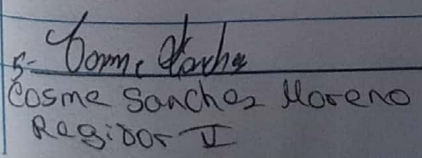 5- Cosme Sanchez
Cosme Sanchez Moreno
Regidor V